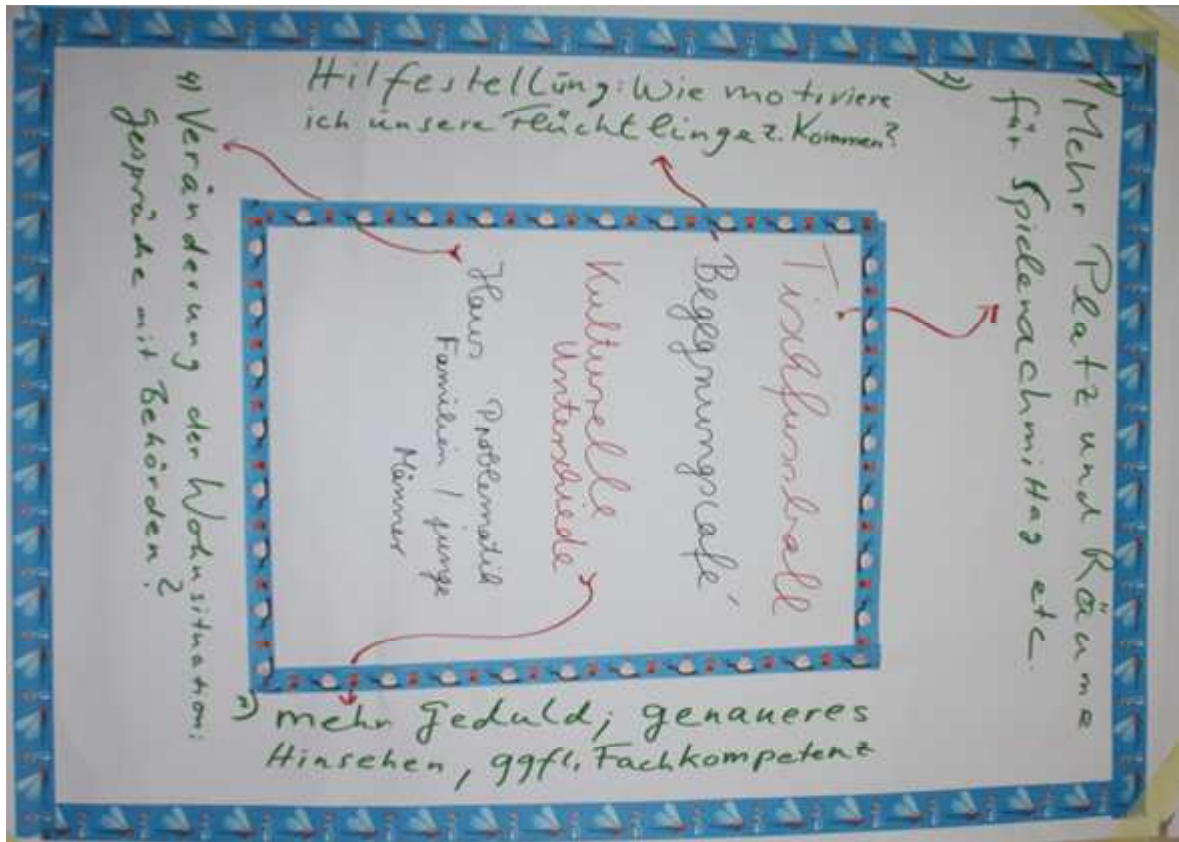 1) Mehr Platz und Räume
für Spielenachmittag etc.
2)
Hilfestellung: Wie motiviere
ich unsere Flüchtlinge z. Kommen?
Tischfussball
Begegnungscafé
Kulturelle
Unterschiede
Haus Problematik
Familien / junge
Männer
3) mehr Geduld; genaueres
Hinsehen, ggfl. Fachkompetenz
4) Veränderung der Wohnsituation:
Gespräche mit Behörden?